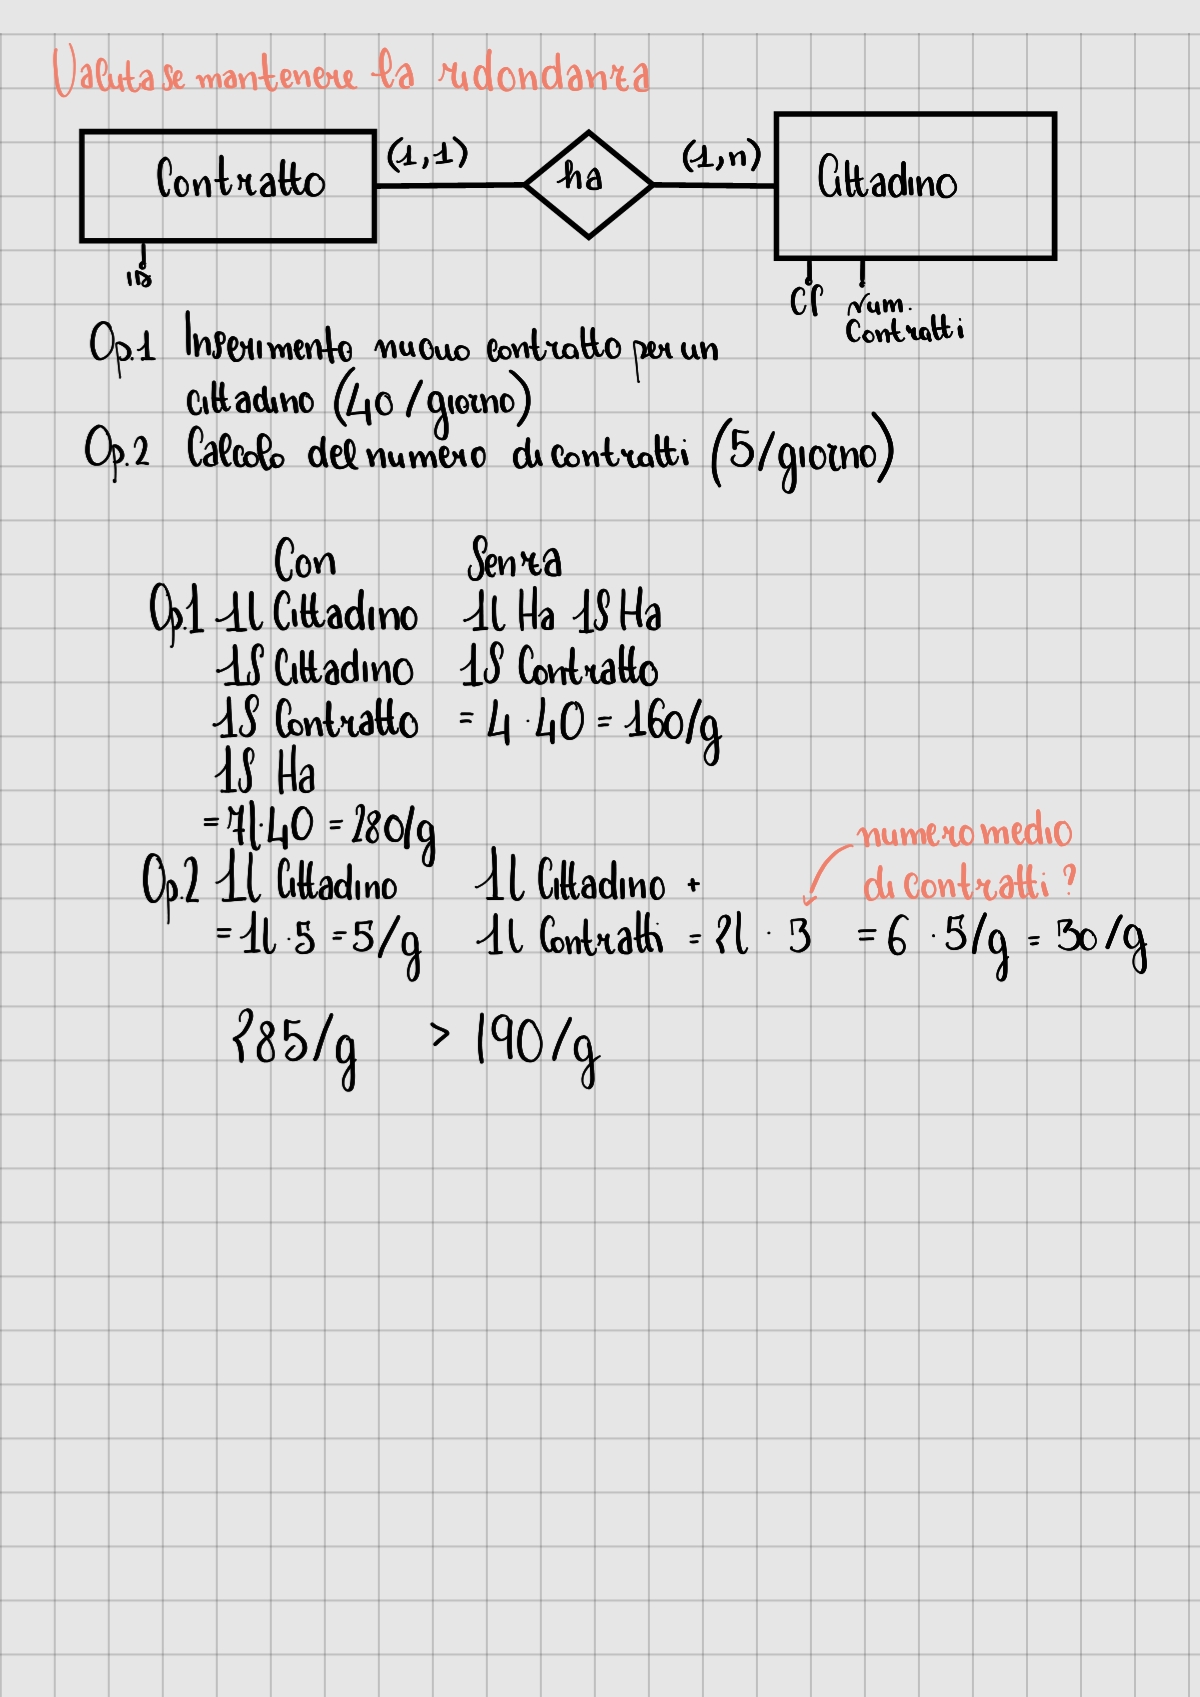 Valuta se mantenere la ridondanza
Contratto (1,1) ha (1,n) Cittadino
ID
CF Num. Contratti
Op.1 Inserimento nuovo contratto per un
cittadino (40/giorno)
Op.2 Calcolo del numero di contratti (5/giorno)
Con Senza
Op.1 1l Cittadino 1l Ha 1S Ha
1S Cittadino 1S Contratto
1S Contratto = 4·40 = 160/g
1S Ha
= 7l·40 = 280/g
numero medio
di contratti?
Op.2 1l Cittadino 1l Cittadino +
= 1l·5 = 5/g 1l Contratti = 2l · 3 = 6 · 5/g = 30/g
285/g > 190/g